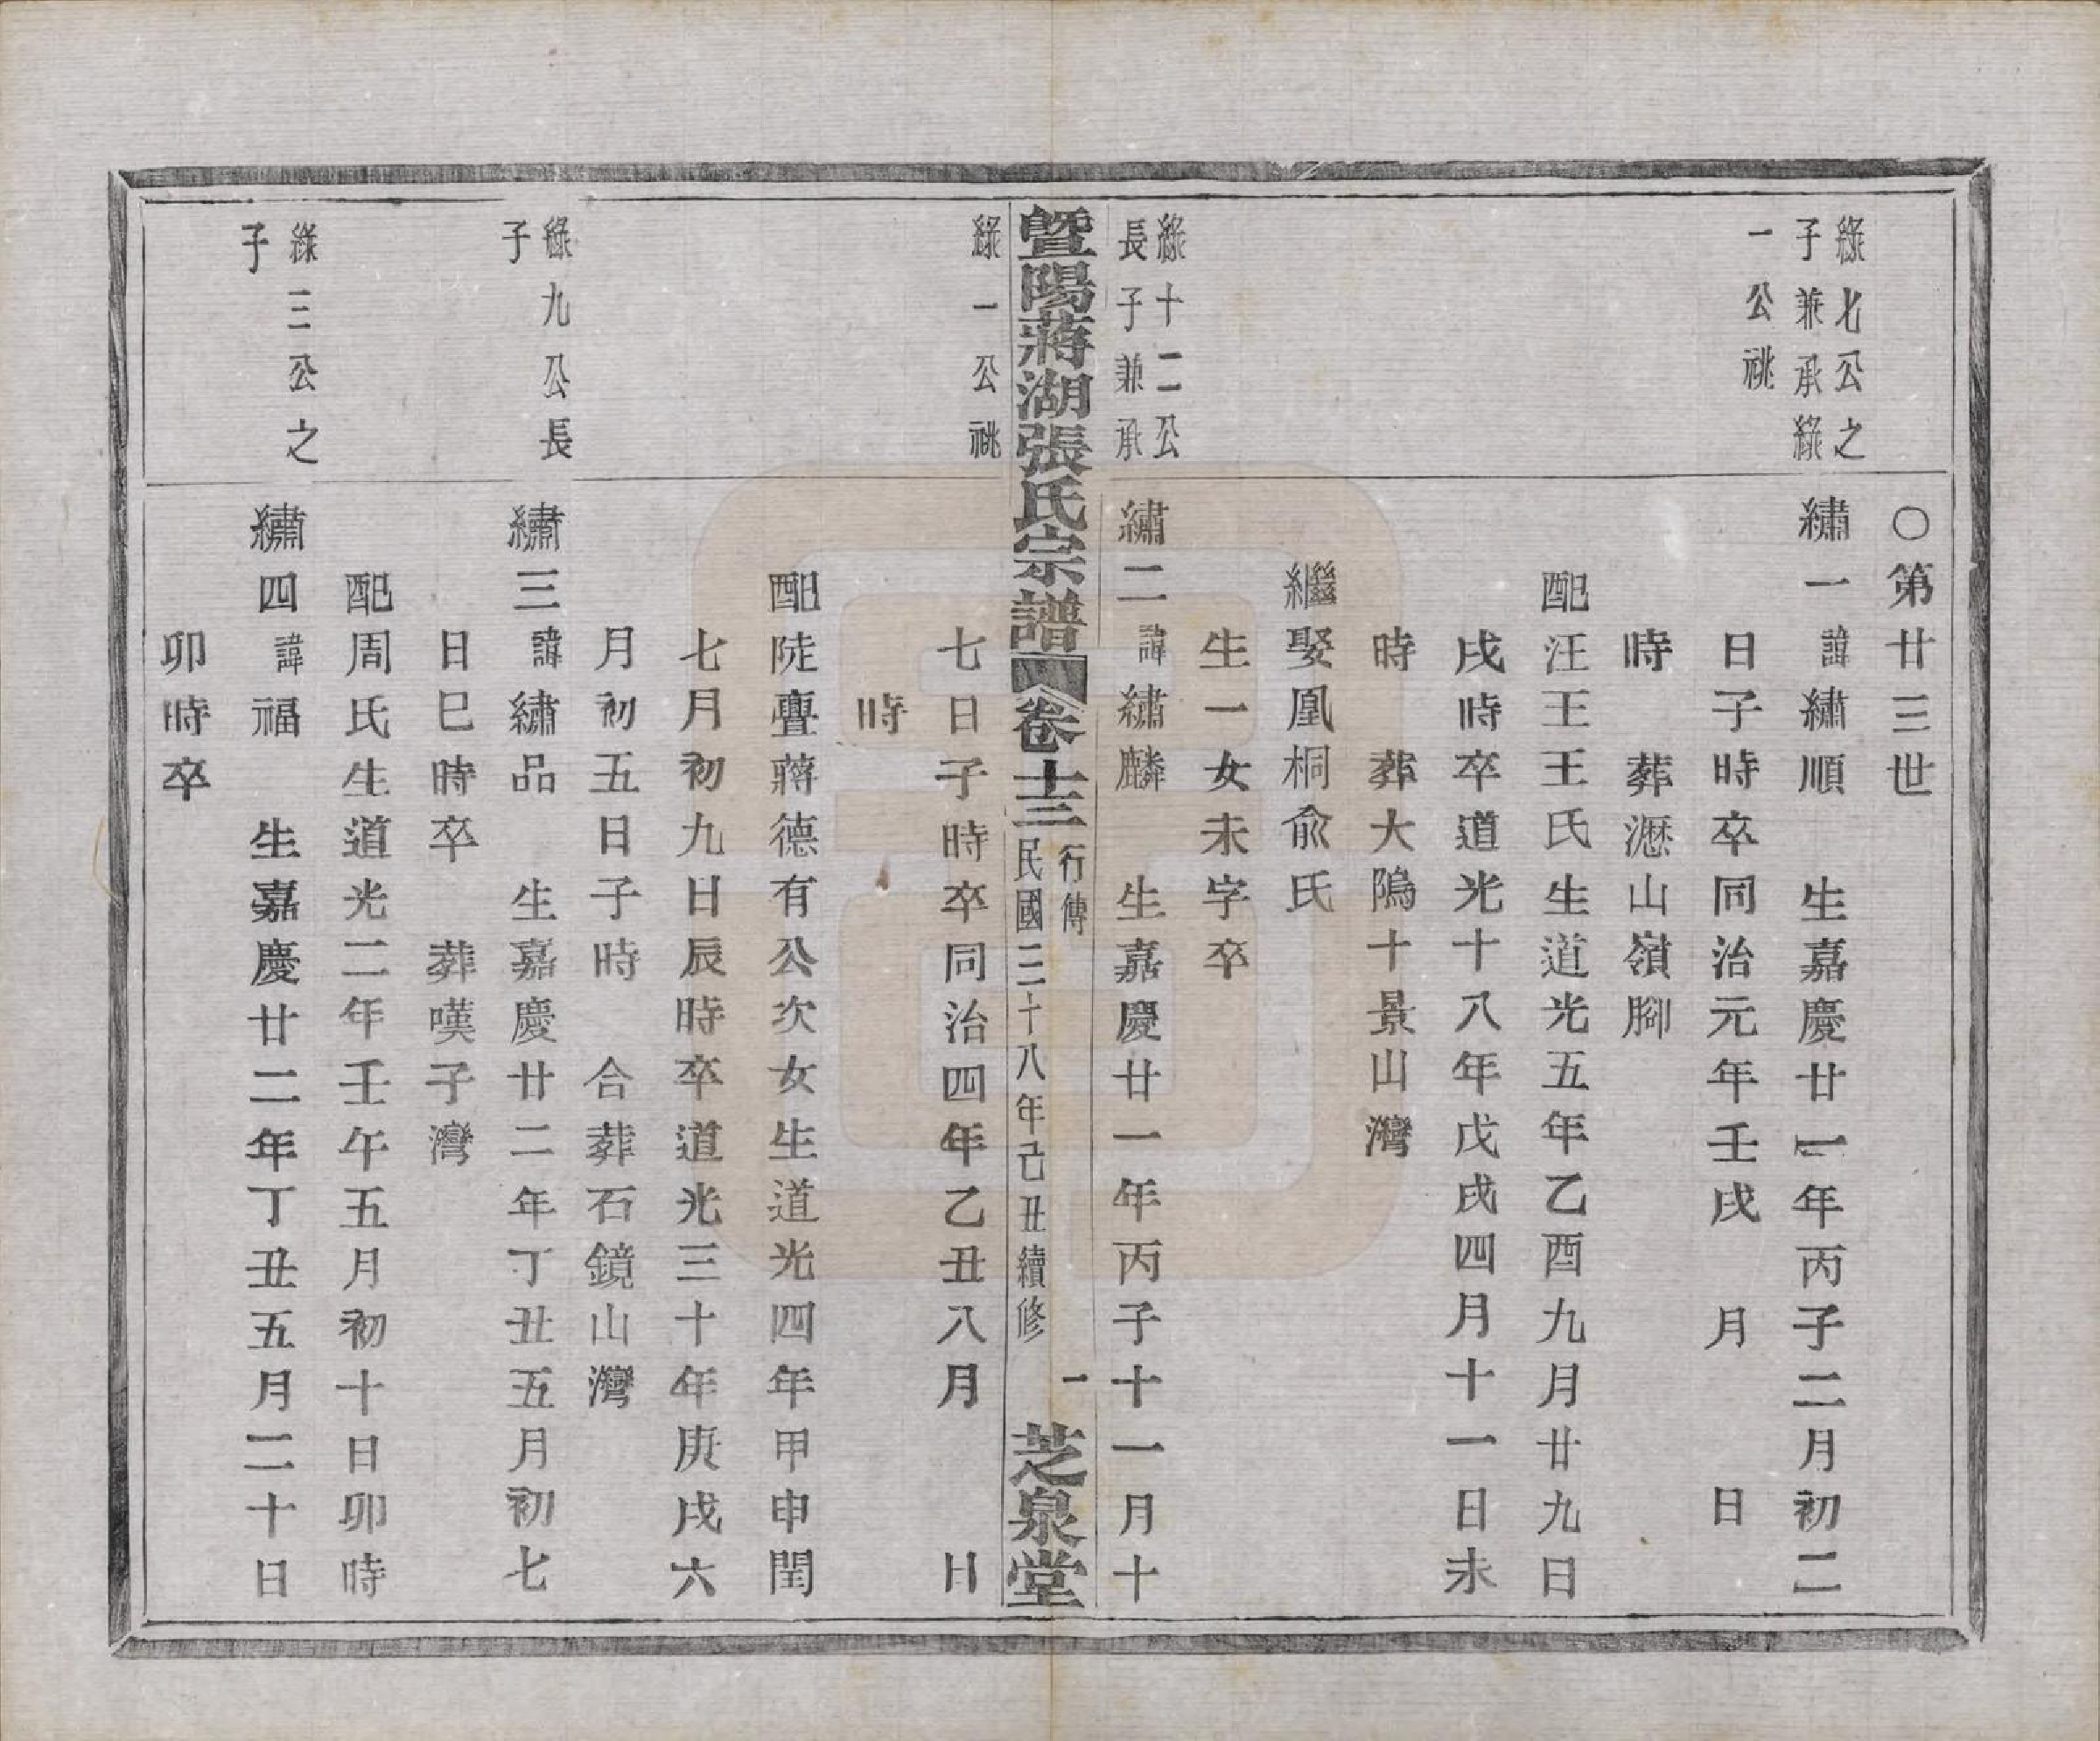 〇第廿三世
綠七公之
子兼承綠
一公祧
繡一諱繡順　生嘉慶廿一年丙子二月初二
日子時卒同治元年壬戌　月　日
時　葬瀝山嶺腳
配汪王王氏生道光五年乙酉九月廿九日
戌時卒道光十八年戊戌四月十一日未
時　葬大隖十景山灣
繼娶凰桐俞氏
生一女未字卒
綠十二公
長子兼承
繡二諱繡麟　生嘉慶廿一年丙子十一月十
暨陽蔣湖張氏宗譜　卷十三　行傳
民國三十八年己丑續修　一　芝泉堂
綠一公祧
七日子時卒同治四年乙丑八月　日
時
配陡亹蔣德有公次女生道光四年甲申閏
七月初九日辰時卒道光三十年庚戌六
月初五日子時　合葬石鏡山灣
綠九公長
子
繡三諱繡品　生嘉慶廿二年丁丑五月初七
日巳時卒　葬嘆子灣
配周氏生道光二年壬午五月初十日卯時
綠三公之
子
繡四諱福　生嘉慶廿二年丁丑五月二十日
卯時卒